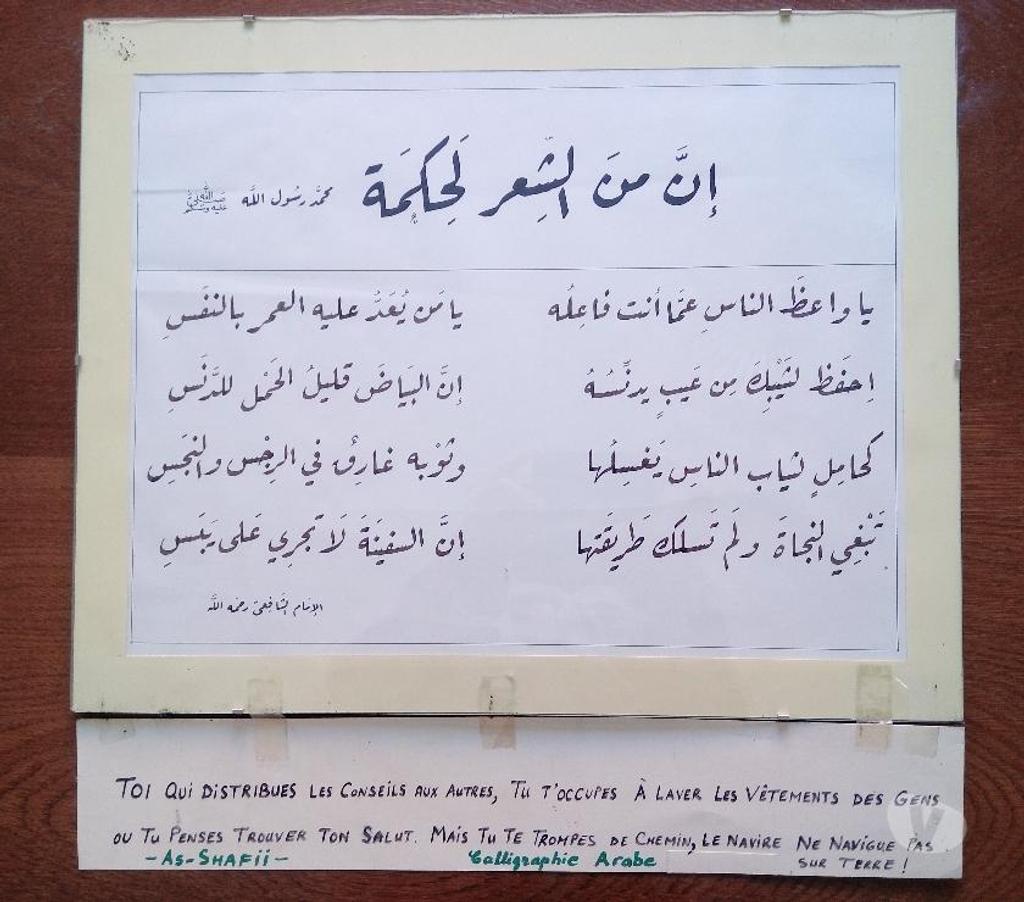 إنَّ منَ الشِّعر لَحِكمَة محمَّد رسُول اللَّه ﷺ
يا واعظَ الناسِ عمَّا أنت فاعِلُه يا مَن يُعَدُّ عليه العمر بالنفَسِ
اِحفَظ لشَيْبِكَ مِن عَيبٍ يدنِّسُهُ إنَّ البَيَاضَ قليلُ الحَمْل للدَّنَسِ
كحامِلٍ لثياب الناسِ يَغسِلُها وثوْبه غارِقٌ في الرِجْس والنجَسِ
تَبْغِي النجاةَ ولَم تَسلك طَريقَتها إنَّ السفينَةَ لَا تجرِي عَلى يبَسِ
الإمَام الشَّافِعى رحمَه اللَّه
TOI QUI DISTRIBUES LES CONSEILS AUX AUTRES, TU T'OCCUPES À LAVER LES VÊTEMENTS DES GENS
OU TU PENSES TROUVER TON SALUT. MAIS TU TE TROMPES DE CHEMIN, LE NAVIRE NE NAVIGUE PAS
-AS-SHAFII- Calligraphie Arabe SUR TERRE !